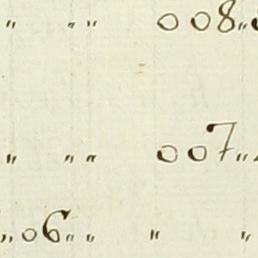 " " " 008"
" " " 007"
06 " " " "